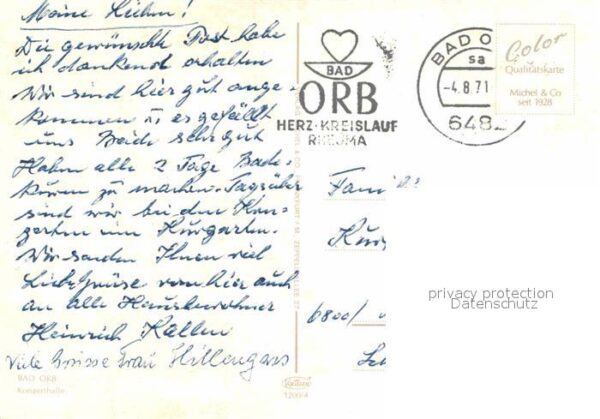 Meine Lieben!
Die gewünschte Post habe
ich dankend erhalten
Wir sind hier gut ange-
kommen u. es gefällt
uns Beide sehr gut
Haben alle 2 Tage Bade-
kuren zu machen. Tagsüber
sind wir bei den Kon-
zerten im Kurgarten.
Wir senden Ihnen viel
Liebe Grüsse von hier auch
an alle Hausbewohner
Heinrich Kallen
Viele Grüsse Frau Hillengass
BAD ORB
Konzerthalle
BAD
ORB
HERZ-KREISLAUF
RHEUMA
BAD O
sa
-4.8.71
648
Color
Qualitätskarte
Michel & Co
seit 1928
FRANKFURT/M. ZEPPELINALLEE 27
Fami
6800/
privacy protection
Datenschutz
1200/4